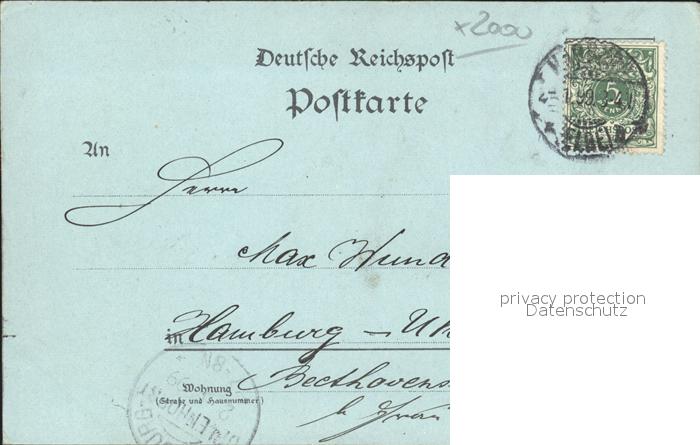 x2000
Deutsche Reichspost
Postkarte
An
Herrn
Max Wund
in Hamburg - Uh
Beethovens
Wohnung
(Straße und Hausnummer)
b. Frau
5
privacy protection
Datenschutz